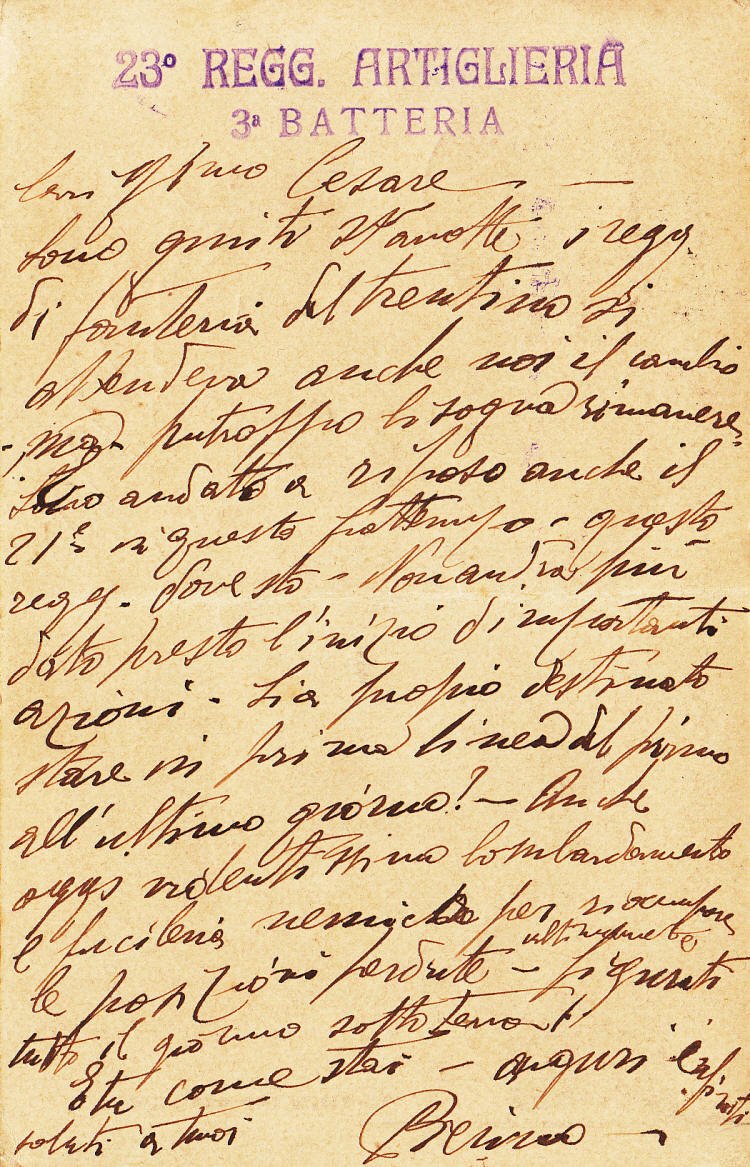 23° REGG. ARTIGLIERIA
3ª BATTERIA
Cesare —
Sono giunti stanotte i regg.
di fanteria dal trentino si
attendeva anche noi il cambio
- ma - putroppo bisogna rimanere -
sono andati a riposo anche il
21° in questo frattempo - questo
regg. - Non andrà più
dato presto l'inizio di importanti
azioni - Sia proprio destinato
stare in prima linea dal primo
all'ultimo giorno! - Anche
oggi violentissimo bombardamento
e fucileria nemica per rioccupare
ultimamente
le posizioni perdute - figurati
tutto il giorno sotto terra!
E tu come stai - auguri e
saluti a tuoi